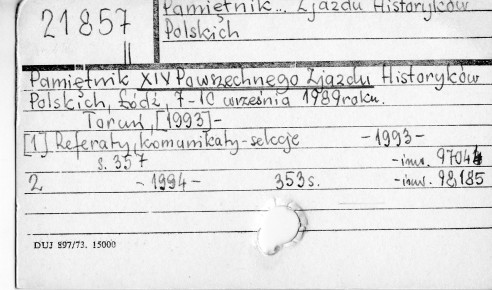 21857
II
Pamiętnik... Zjazdu Historyków
Polskich
Pamiętnik XIV Powszechnego Zjazdu Historyków
Polskich, Łódź, 7-10 września 1989 roku.
Toruń, [1993]-
[1] Referaty, komunikaty-sekcje -1993-
s. 357 -inw. 97044
2 -1994- 353s. -inw. 98185
DUJ 897/73. 15000